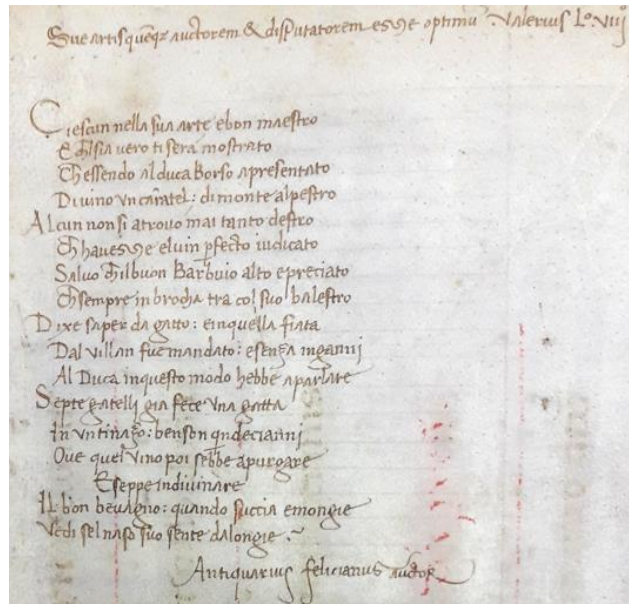 Sue artis quẽqz auctorem & disputatorem esse optimũ Valerius Lº. viijº
Ciescun nella sua arte e bon maestro
E chˉ sia vero ti sera mostrato
Chˉ essendo al duca Borso apresentato
Di vino un caratel: di monte alpestro
Alcun non si atrovo mai tanto destro
Chˉ havesse el vin ꝑfecto iudicato
Salvo chˉ il buon Barbuio alto e preciato
Chˉ sempre in brocha tra col suo balestro
Dixe saper da gatto: e in quella fiata
Dal villan fue mandato: e senza inganni
Al Duca in questo modo hebbe a parlare
Septe gatelli gia fece una gatta
In un tinazo: ben son qndeci anni
Ove quel vino poi sebbe a purgare
E seppe indivinare
Il bon bevagno: quando succia e mongie
Vedi sel naso suo sente da longie .~
Antiquarius felicianus auctor